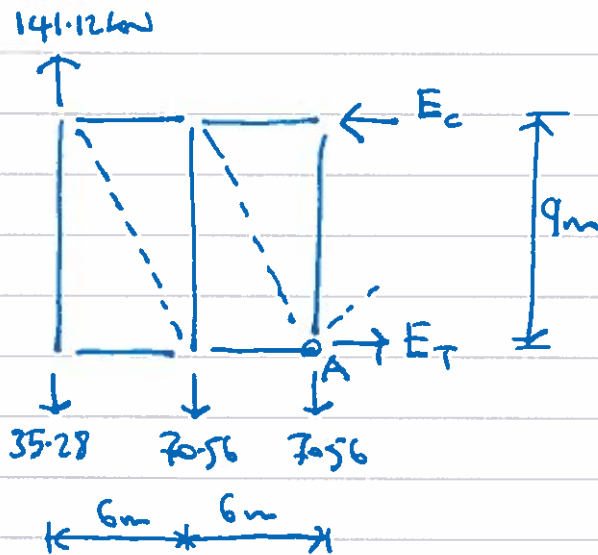 141.12kN
E_c
9m
E_T
A
35.28 70.56 70.56
6m 6m